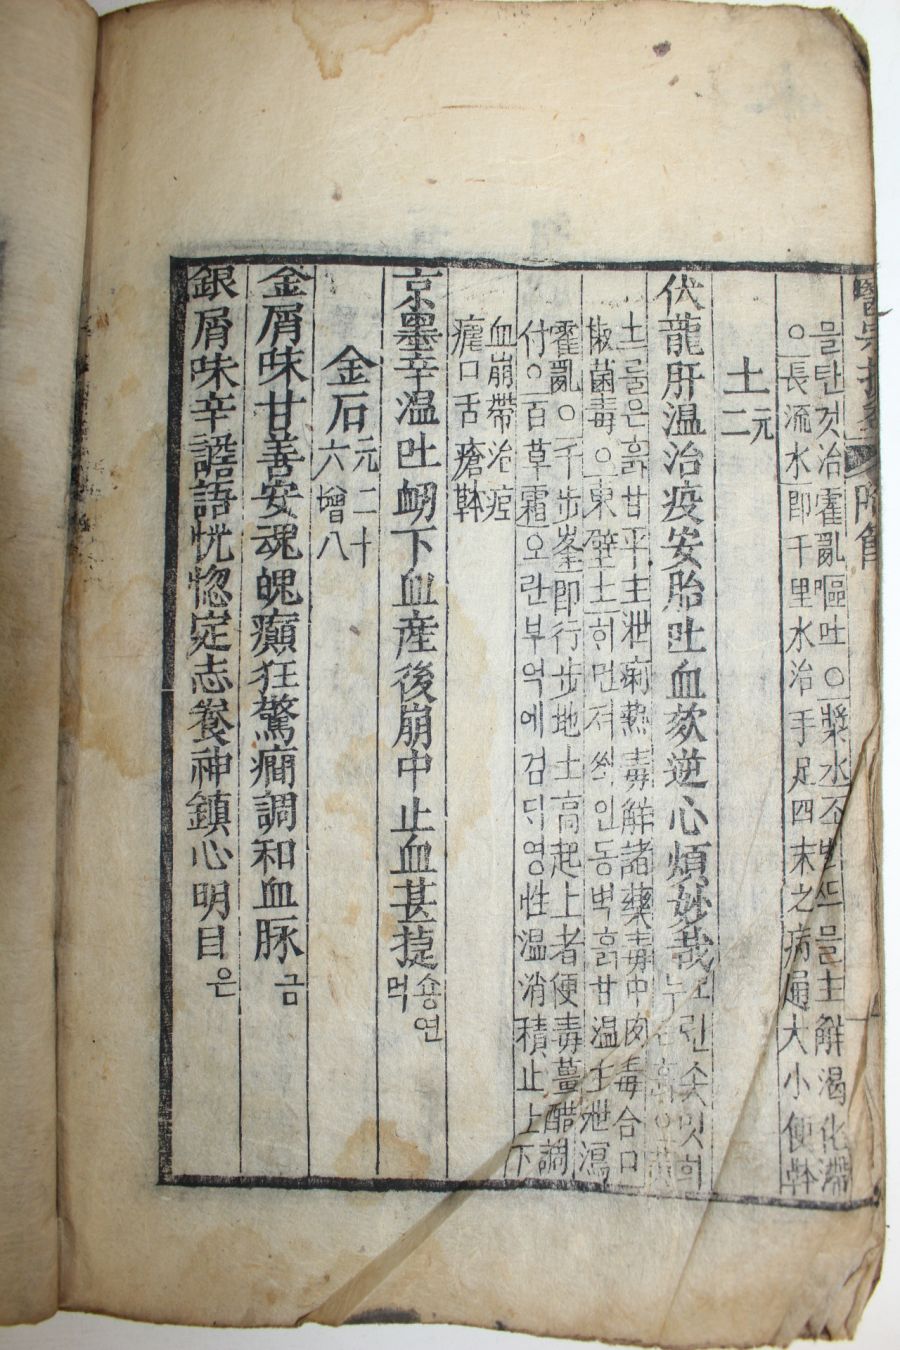 믈탄것治霍亂嘔吐○漿水조ᄡᆞᆯ쓰믈主解渴化滯
○長流水即千里水治手足四末之病通大小便
土二元
伏龍肝温治疫安胎吐血欬逆心煩妙哉
土甘平主泄痢熱毒解諸藥毒中肉毒合口
椒菌毒○東壁土동벽흙甘温主泄瀉
霍亂○千步峯即行步地土高起上者便毒薑醋調
付○百草霜오란부억에검디영性温消積止上下
血崩帶治疸
瘧口舌瘡
京墨辛温吐衄下血産後崩中止血甚捷숑연먹
金石元二十六增八
金屑味甘善安魂魄癲狂驚癎調和血脉금
銀屑味辛譫語恍惚定志養神鎮心明目은